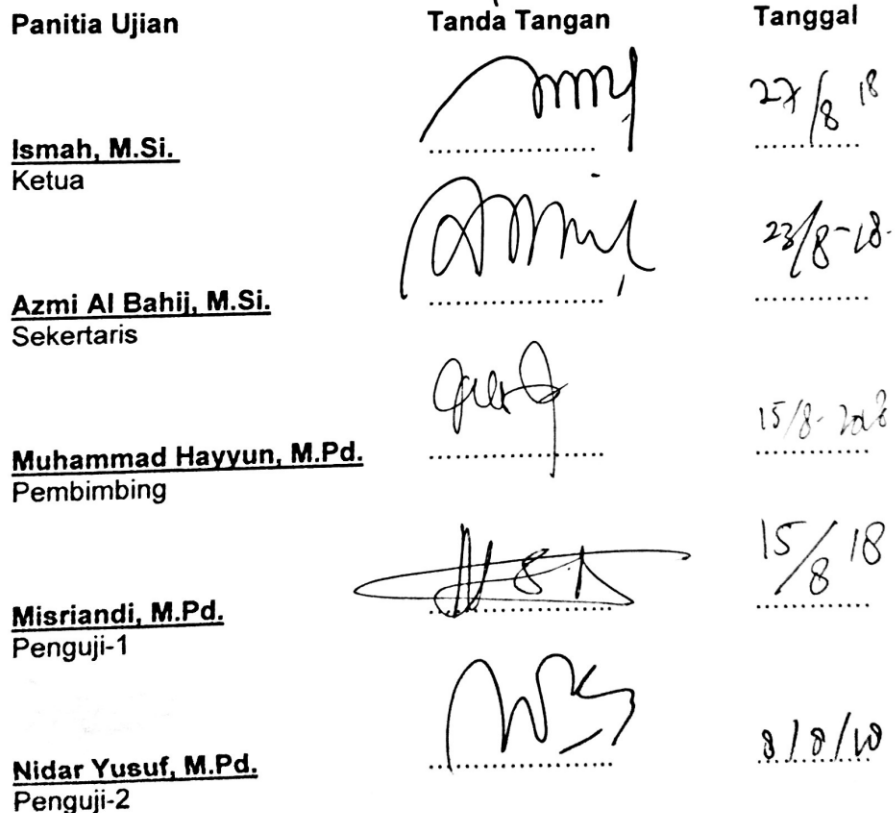 Panitia Ujian Tanda Tangan Tanggal
27/8 18
Ismah, M.Si. ..................... ..............
Ketua
23/8-18.
Azmi Al Bahij, M.Si. ..................... ..............
Sekertaris
15/8-2018
Muhammad Hayyun, M.Pd. ..................... ..............
Pembimbing
15/8 18
Misriandi, M.Pd. ..................... ..............
Penguji-1
Nidar Yusuf, M.Pd. ..................... ..............
Penguji-2